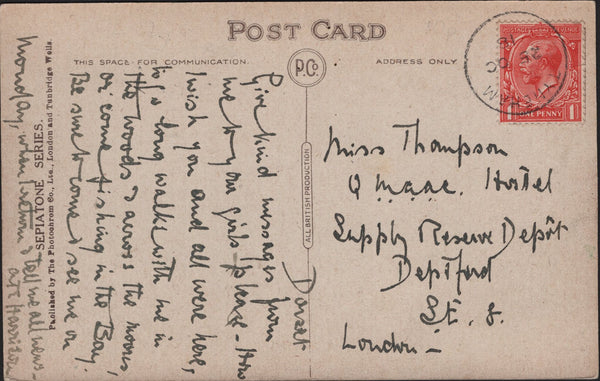 POST CARD
THIS SPACE FOR COMMUNICATION.
ADDRESS ONLY
P.Co.
ALL BRITISH PRODUCTION
SEPIATONE SERIES.
Published by The Photochrom Co., Ltd., London and Tunbridge Wells.
ONE PENNY
Dorset
Give kind messages from
me to your girls please - How
I wish you and all were here,
to go long walks with me in
the woods & across the moors,
or come fishing in the Bay.
Be sure to come & see me on
Monday, when I return & tell me all news -
Miss Thompson
Q.M.A.A.C. Hostel
Supply Reserve Depôt
Deptford
S.E. 8.
London -